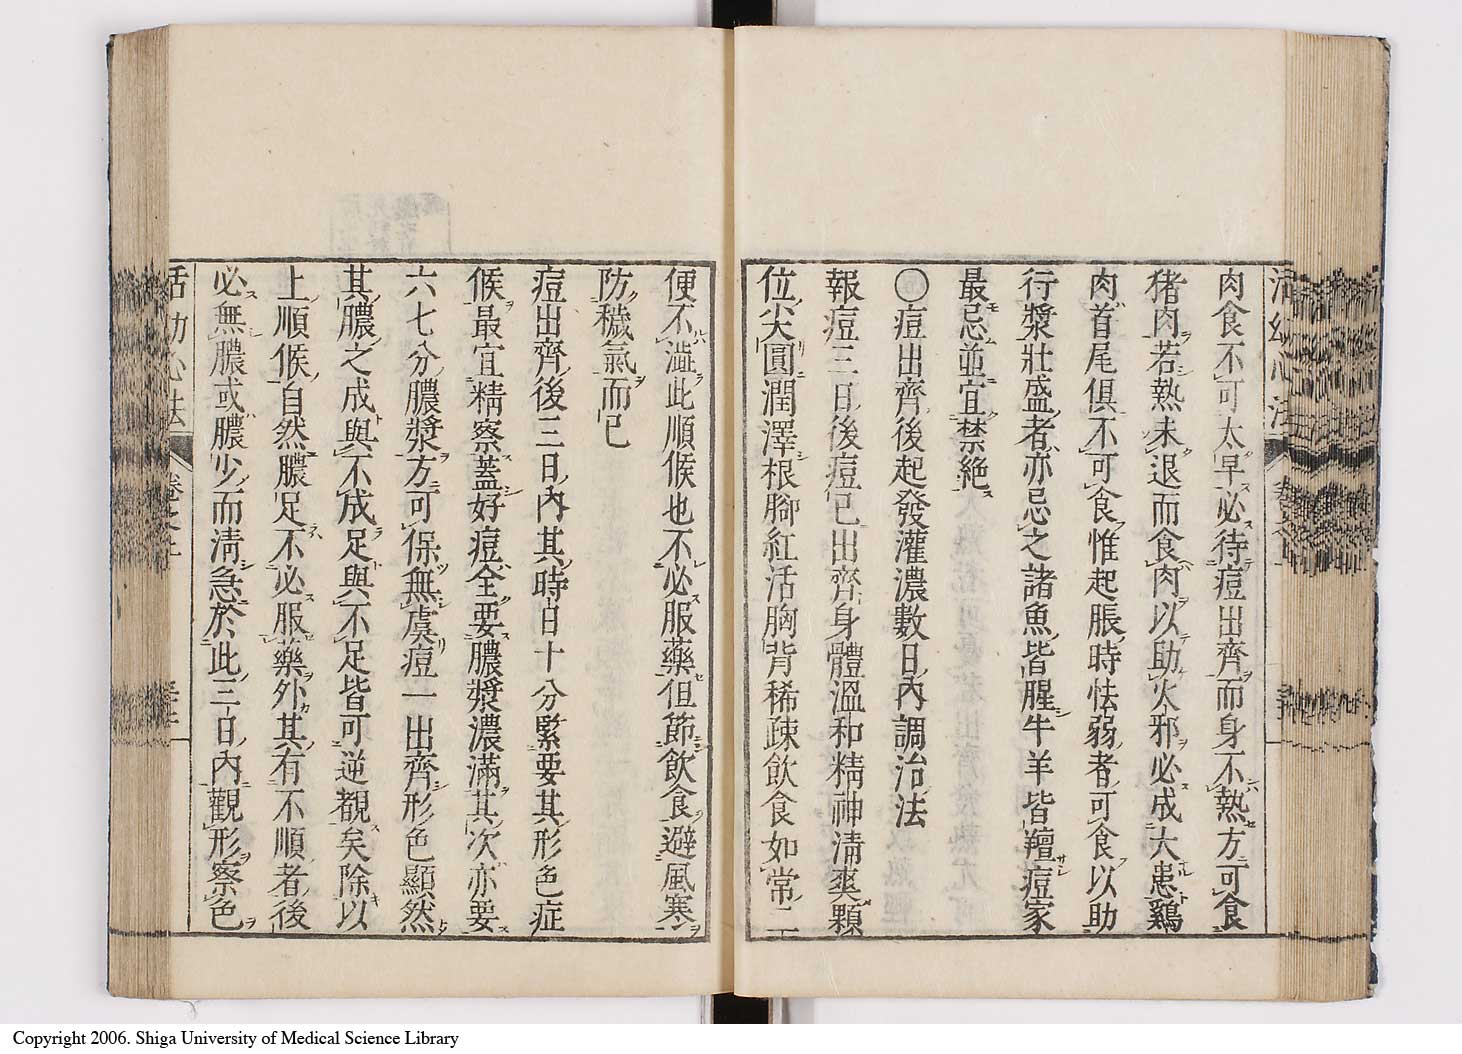 肉食不可太早必待痘出齊而身不熱方可食
猪肉若熱未退而食肉以助火邪必成大患鷄
肉首尾俱不可食惟起脹時怯弱者可食以助
行漿壯盛者亦忌之諸魚皆腥牛羊皆羶痘家
最忌並宜禁絶
〇痘出齊後起發灌濃數日內調治法
報痘三日後痘已出齊身體溫和精神淸爽顆
位尖圓潤澤根腳紅活胸背稀疎飮食如常二
便不澁此順候也不必服藥但節飮食避風寒
防穢氣而已
痘出齊後三日內其時日十分緊要其形色症
候最宜精察蓋好痘全要膿漿濃滿其次亦要
六七分膿漿方可保無虞痘一出齊形色顯然
其膿之成與不成足與不足皆可逆覩矣除以
上順候自然膿足不必服藥外其有不順者後
必無膿或膿少而淸急於此三日內觀形察色
活幼心法
Copyright 2006. Shiga University of Medical Science Library